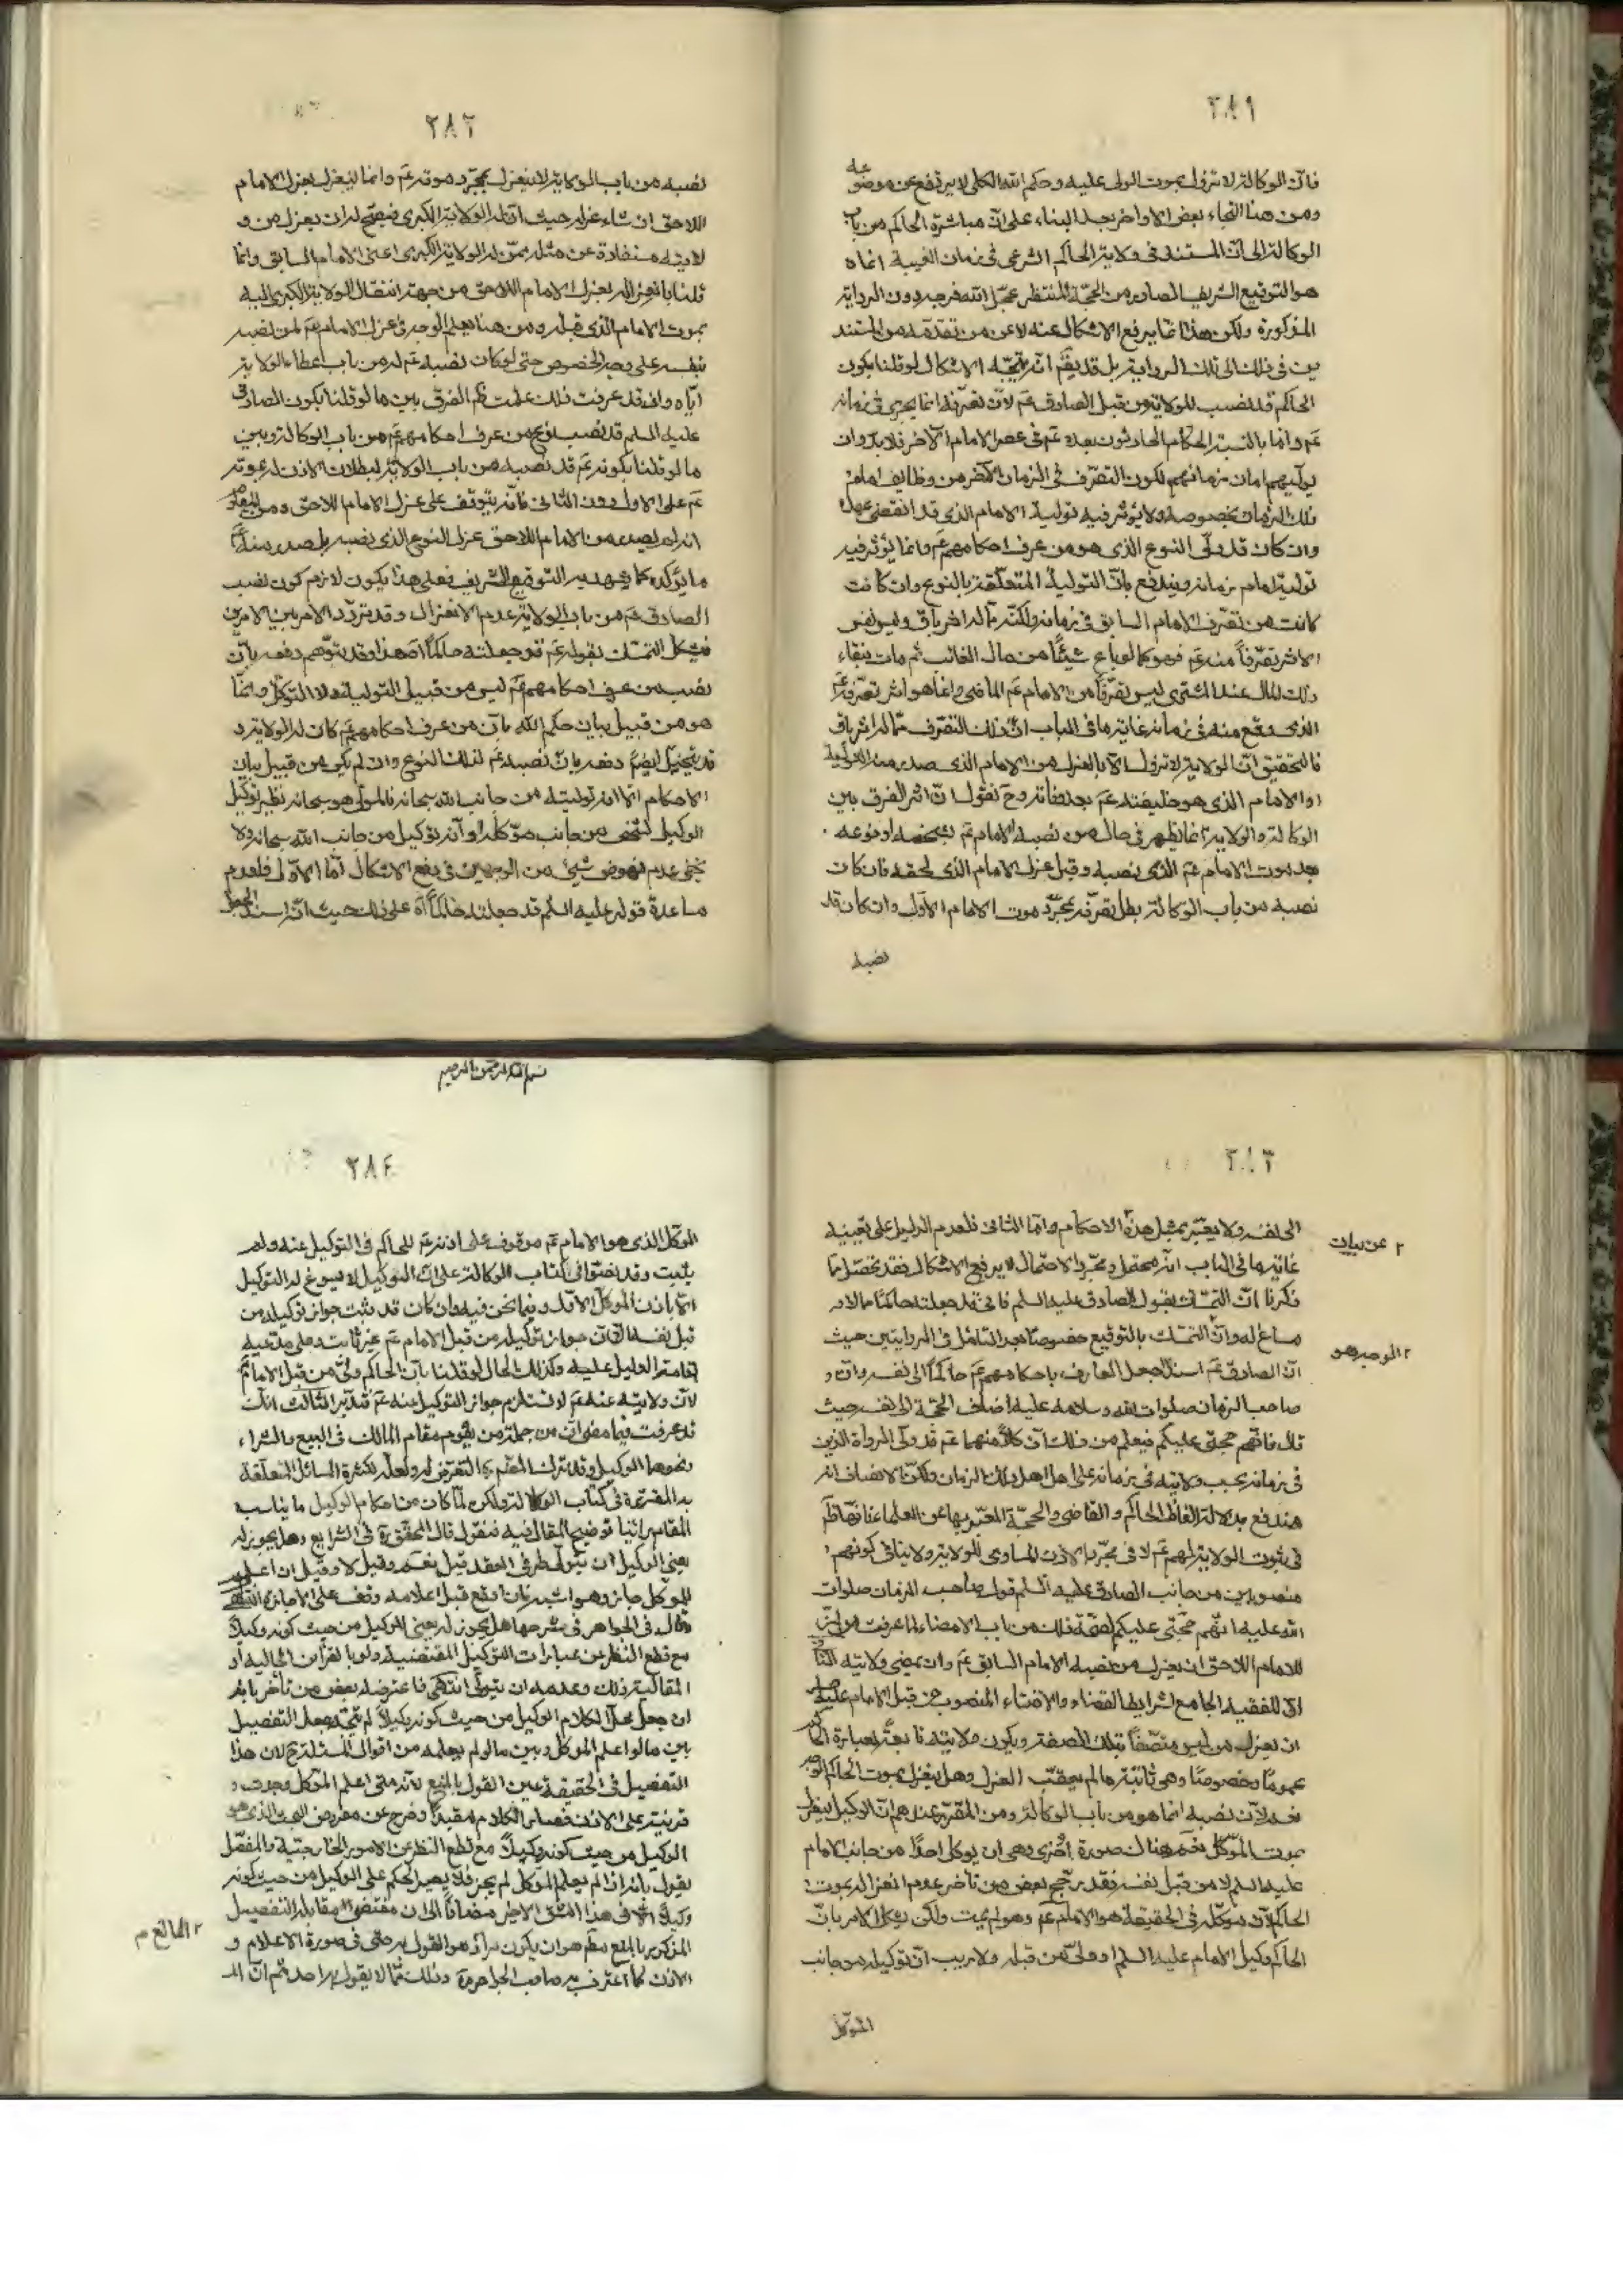 ٢٨١
فان الوكالة لا تزول بموت المولى عليه وحكم الله الكلى لا يرتفع عن موضوعه
ومن هنا التجاء بعض الاواخر بعد البناء على ان مباشرة الحاكم من باب
الوكالة الى ان المستند فى ولاية الحاكم الشرعى فى زمان الغيبة انما ه
هو التوقيع الشريف الصادر من الحجة المنتظر عجل الله فرجه دون الرواية
المذكورة ولكن هذا انما يرفع الاشكال عنه لا عن من تقدمه من المستند
ين فى ذلك الى تلك الرواية بل قد يقم انه يتجه الاشكال لو قلنا بكون
الحاكم قد نصب للولاية من قبل الصادق عم لان تصرفه انما يجرى فى زمانه
عم واما بالنسبة الحكام الحادثون بعده عم فى عصر الامام الآخر فلا بد وان
يوليهم امام زمانهم لكون التصرف فى الزمان الآخر من وظايف امام
ذلك الزمان بخصوصه ولا يؤثر فيه تولية الامام الذى قد انقضى عهده
وان كان قد ولى النوع الذى هو من عرف احكامهم عم وانما يؤثر فيه
تولية امام زمانه ويندفع بان التولية المتعلقة بالنوع وان كانت
كانت من تصرف الامام السابق فى زمانه ولكنه مما له اثر باق وليس نفس
الاثر تصرفاً منه عم فهو كما لو باع شيئاً من مال الغائب ثم مات فبقاء
ذلك المال عند المشترى ليس تصرفاً من الامام عم الماضى وانما هو اثر تصرفه عم
الذى وقع منه فى زمانه غاية ما فى الباب ان ذلك التصرف مما له اثر باق
فالتحقيق ان الولاية لا تزول الا بالعزل من الامام الذى صدر منه التولية
او الامام الذى هو خليفته عم بعد وفاته وح نقول ان اثر الفرق بين
الوكالة والولاية انما يظهر فى حال من نصبه الامام عم بشخصه او نوعه
بعد موت الامام عم الذى نصبه وقبل عزل الامام الذى لحقه فان كان
نصبه من باب الوكالة بطل تصرفه بمجرد موت الامام الاول وان كان قد
نصبه
٢٨٢
نصبه من باب الولاية لا ينعزل بمجرد موته عم وانما ينعزل بعزل الامام
اللاحق ان شاء عزله حيث ان له الولاية الكبرى فيصح له ان يعزل من و
لايته مستفادة عن مثله ممن له الولاية الكبرى اعنى الامام السابق وانما
قلنا بانعزاله بعزل الامام اللاحق من جهة انتقال الولاية الكبرى اليه
بموت الامام الذى قبله ومن هنا يعلم الوجه فى عزل الامام عم لمن نصبه
بنفسه على وجه الخصوص حتى لو كان نصبه عم له من باب اعطاء الولاية
اياه واذ قد عرفت ذلك علمت ظهر الفرق بين ما لو قلنا بكون الصادق
عليه السلم قد نصب نوع من عرف احكامهم عم من باب الوكالة وبين
ما لو قلنا بكونه عم قد نصبه من باب الولاية لبطلان الاذن له بموته
عم على الاول دون الثانى فانه يتوقف على عزل الامام اللاحق ومن المعلوم
انه لم يصدر من الامام اللاحق عزل النوع الذى نصبه بل صدر منه
ما يؤكده كما يشهد به التوقيع الشريف فعلى هذا يكون لازم كون نصب
الصادق عم من باب الولاية عدم الانعزال وقد تردد الامر بين الامرين
فيشكل التمسك بقوله عم قد جعلته حاكماً هذا وقد يتوهم دفعه بان
نصب من عرف احكامهم عم ليس من قبيل التولية ولا التوكل وانما
هو من قبيل بيان حكم الله بان من عرف احكامهم عم كان له الولاية و
قد يتخيل ايضم دفعه بان نصبه عم لذلك النوع وان لم يكن من قبيل بيان
الاحكام الا انه توليته من جانب الله سبحانه فالمولى هو سبحانه نظير توكيل
الوكيل لشخص من جانب موكله او انه توكيل من جانب الله سبحانه ولا
يخفى عدم نهوض شيئ من الوجهين فى دفع الاشكال اما الاول فلعدم
مساعدة قوله عليه السلم قد جعلته حاكماً اه على ذلك حيث انه اسند الجعل
٢٨٣
الى نفسه ولا يعبر بمثل هذه الاحكام واما الثانى فلعدم الدليل على تعيينه
٢ عن بيان
غاية ما فى الباب انه محتمل ومجرد الاحتمال لا يرفع الاشكال فقد تحصل مما
ذكرنا ان التمسك بقول الصادق عليه السلم فانى قد جعلته حاكماً مما لا
مساغ له وان التمسك بالتوقيع خصوصاً بعد التامل فى الروايتين حيث
٢ الوجه هو
ان الصادق عم اسند الجعل العارف باحكامهم عم حاكماً الى نفسه وان و
صاحب الزمان صلوات الله وسلامه عليه اضاف الحجة الى نفسه حيث
قال فانهم حجتى عليكم فيعلم من ذلك ان كلا منهما عم قد ولى الرواة الذين
فى زمانه بحسب ولايته فى زمانه على اهل ذلك الزمان ولكن الانصاف انه
مندفع بدلالة الفاظ الحاكم والقاضى والحجة المعبر بها عن العلماء فانها ظم
فى ثبوت الولاية لهم عم لا فى مجرد الاذن المساوى للولاية ولا ينافى كونهم
منصوبين من جانب الصادق عليه السلم قول صاحب الزمان صلوات
الله عليه انهم حجتى عليكم لصحة ذلك من باب الامضاء لما عرفت من ان
للامام اللاحق ان يعزل من نصبه الامام السابق عم وان يمضى ولايته
الى للفقيه الجامع لشرايط القضاء والافتاء المنصوب من قبل الامام عليه السلم
ان يعزل من ليس متصفاً بتلك الصفة ويكون ولايته
عموماً وخصوصاً وهى ثابتة ما لم يعقب العزل وهل ينعزل بموت الحاكم الوجه
نعم لان نصبه انما هو من باب الوكالة ومن المقرر عندهم ان الوكيل ينعزل
بموت الموكل نعم هنالك صورة اخرى وهى ان يوكل احداً من جانب الامام
عليه السلم لا من قبل نفسه فقد رجح بعض من تاخر عدم انعزاله بموت
الحاكم لان موكله فى الحقيقة هو الامام عم وهو لم يمت ولكن يشكل الامر بان
الحاكم وكيل الامام عليه السلم او ولى من قبله ولا ريب ان توكيله من جانب
الموكل
بسم الله الرحمن الرحيم
٢٨٤
الموكل الذى هو الامام عم موقوف على اذنه عم للحاكم فى التوكيل عنه ولم
يثبت وقد نصوا فى كتاب الوكالة على ان الوكيل لا يسوغ له التوكيل
الا باذن الموكل الاول وفيما نحن فيه وان كان قد يثبت جواز توكيله من
قبل نفسه الا ان جواز توكيله من قبل الامام عم غير ثابت فعلى مدعيه
اقامة الدليل عليه وكذلك الحال لو قلنا بان الحاكم ولى من قبل الامام عم
لان ولايته عنه عم لا تستلزم جواز التوكيل عنه عم فتدبر الثالث انك
قد عرفت فيما مضى ان من جملة من يقوم مقام المالك فى البيع والشراء
ونحوهما الوكيل وقد ترك المصم ره التعرض له ولعله لكثرة المسائل المتعلقة
به المقررة فى كتاب الوكالة ولكن لما كان من احكام الوكيل ما يناسب
المقام راينا توضيح المقال فيه فنقول قال المحقق ره فى الشرايع وهل يجوز له
يعنى الوكيل ان يتولى طرفى العقد قيل نعم وقيل لا وقيل ان اعلم
الموكل جاز وهو اشبه فان اوقع قبل اعلامه وقف على الاجازة انتهى
وقال فى الجواهر فى شرحها هل يجوز له يعنى الوكيل من حيث كونه وكيلاً
مع قطع النظر عن عبارات التوكيل المقتضية ولو بالقرائن الحالية او
المقالية ذلك وعدمه ان يتولى انتهى فاعترضه بعض من تاخر بانه
ان جعل محل الكلام الوكيل من حيث كونه وكيلاً لم يتجه جعل التفصيل
بين ما لو اعلم الموكل وبين ما لو لم يعلمه من اقوال المسئلة ح لان هذا
التفصيل فى الحقيقة عين القول بالمنع لانه متى اعلم الموكل وجدت
قرينة على الاذن فصار الكلام مقيداً وخرج عن مفروض البحث الذى هو
الوكيل من حيث كونه وكيلاً مع قطع النظر عن الامور الخارجية والمفصل
يقول بانه اذا لم يعلم الموكل لم يجز فلا يصير الحكم على الوكيل من حيث كونه
وكيلاً الا فى هذا الشق الاخير مضافاً الى ان مقتضى مقابلة التفصيل
٢ المانع م
المذكور بالمنع مطم هو ان يكون مراد هو القول به حتى فى صورة الاعلام و
الاذن كما اعترف به صاحب الجواهر ره وذلك مما لا يقول به احد ثم ان الـ